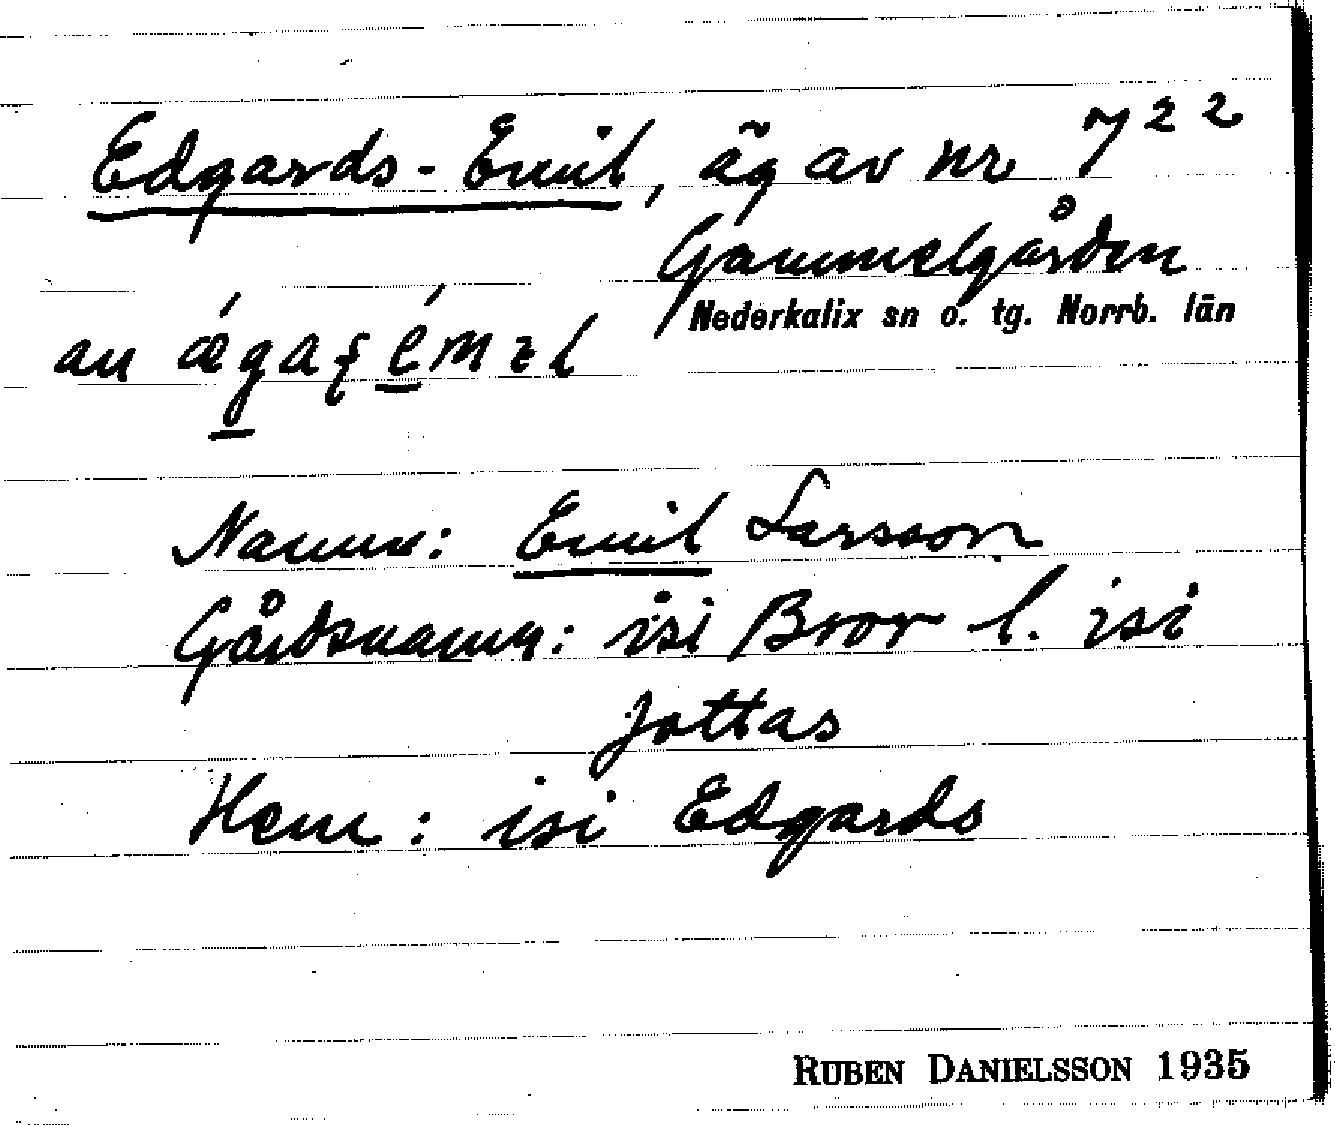 Edgards-Emil, äg av nr 7²²
Gammelgården
Nederkalix sn o. tg. Norrb. län
an
Namn: Emil Larsson
Gårdsnamn: isi Bror l. isi
Jottas
Hem: isi Edgards
RUBEN DANIELSSON 1935